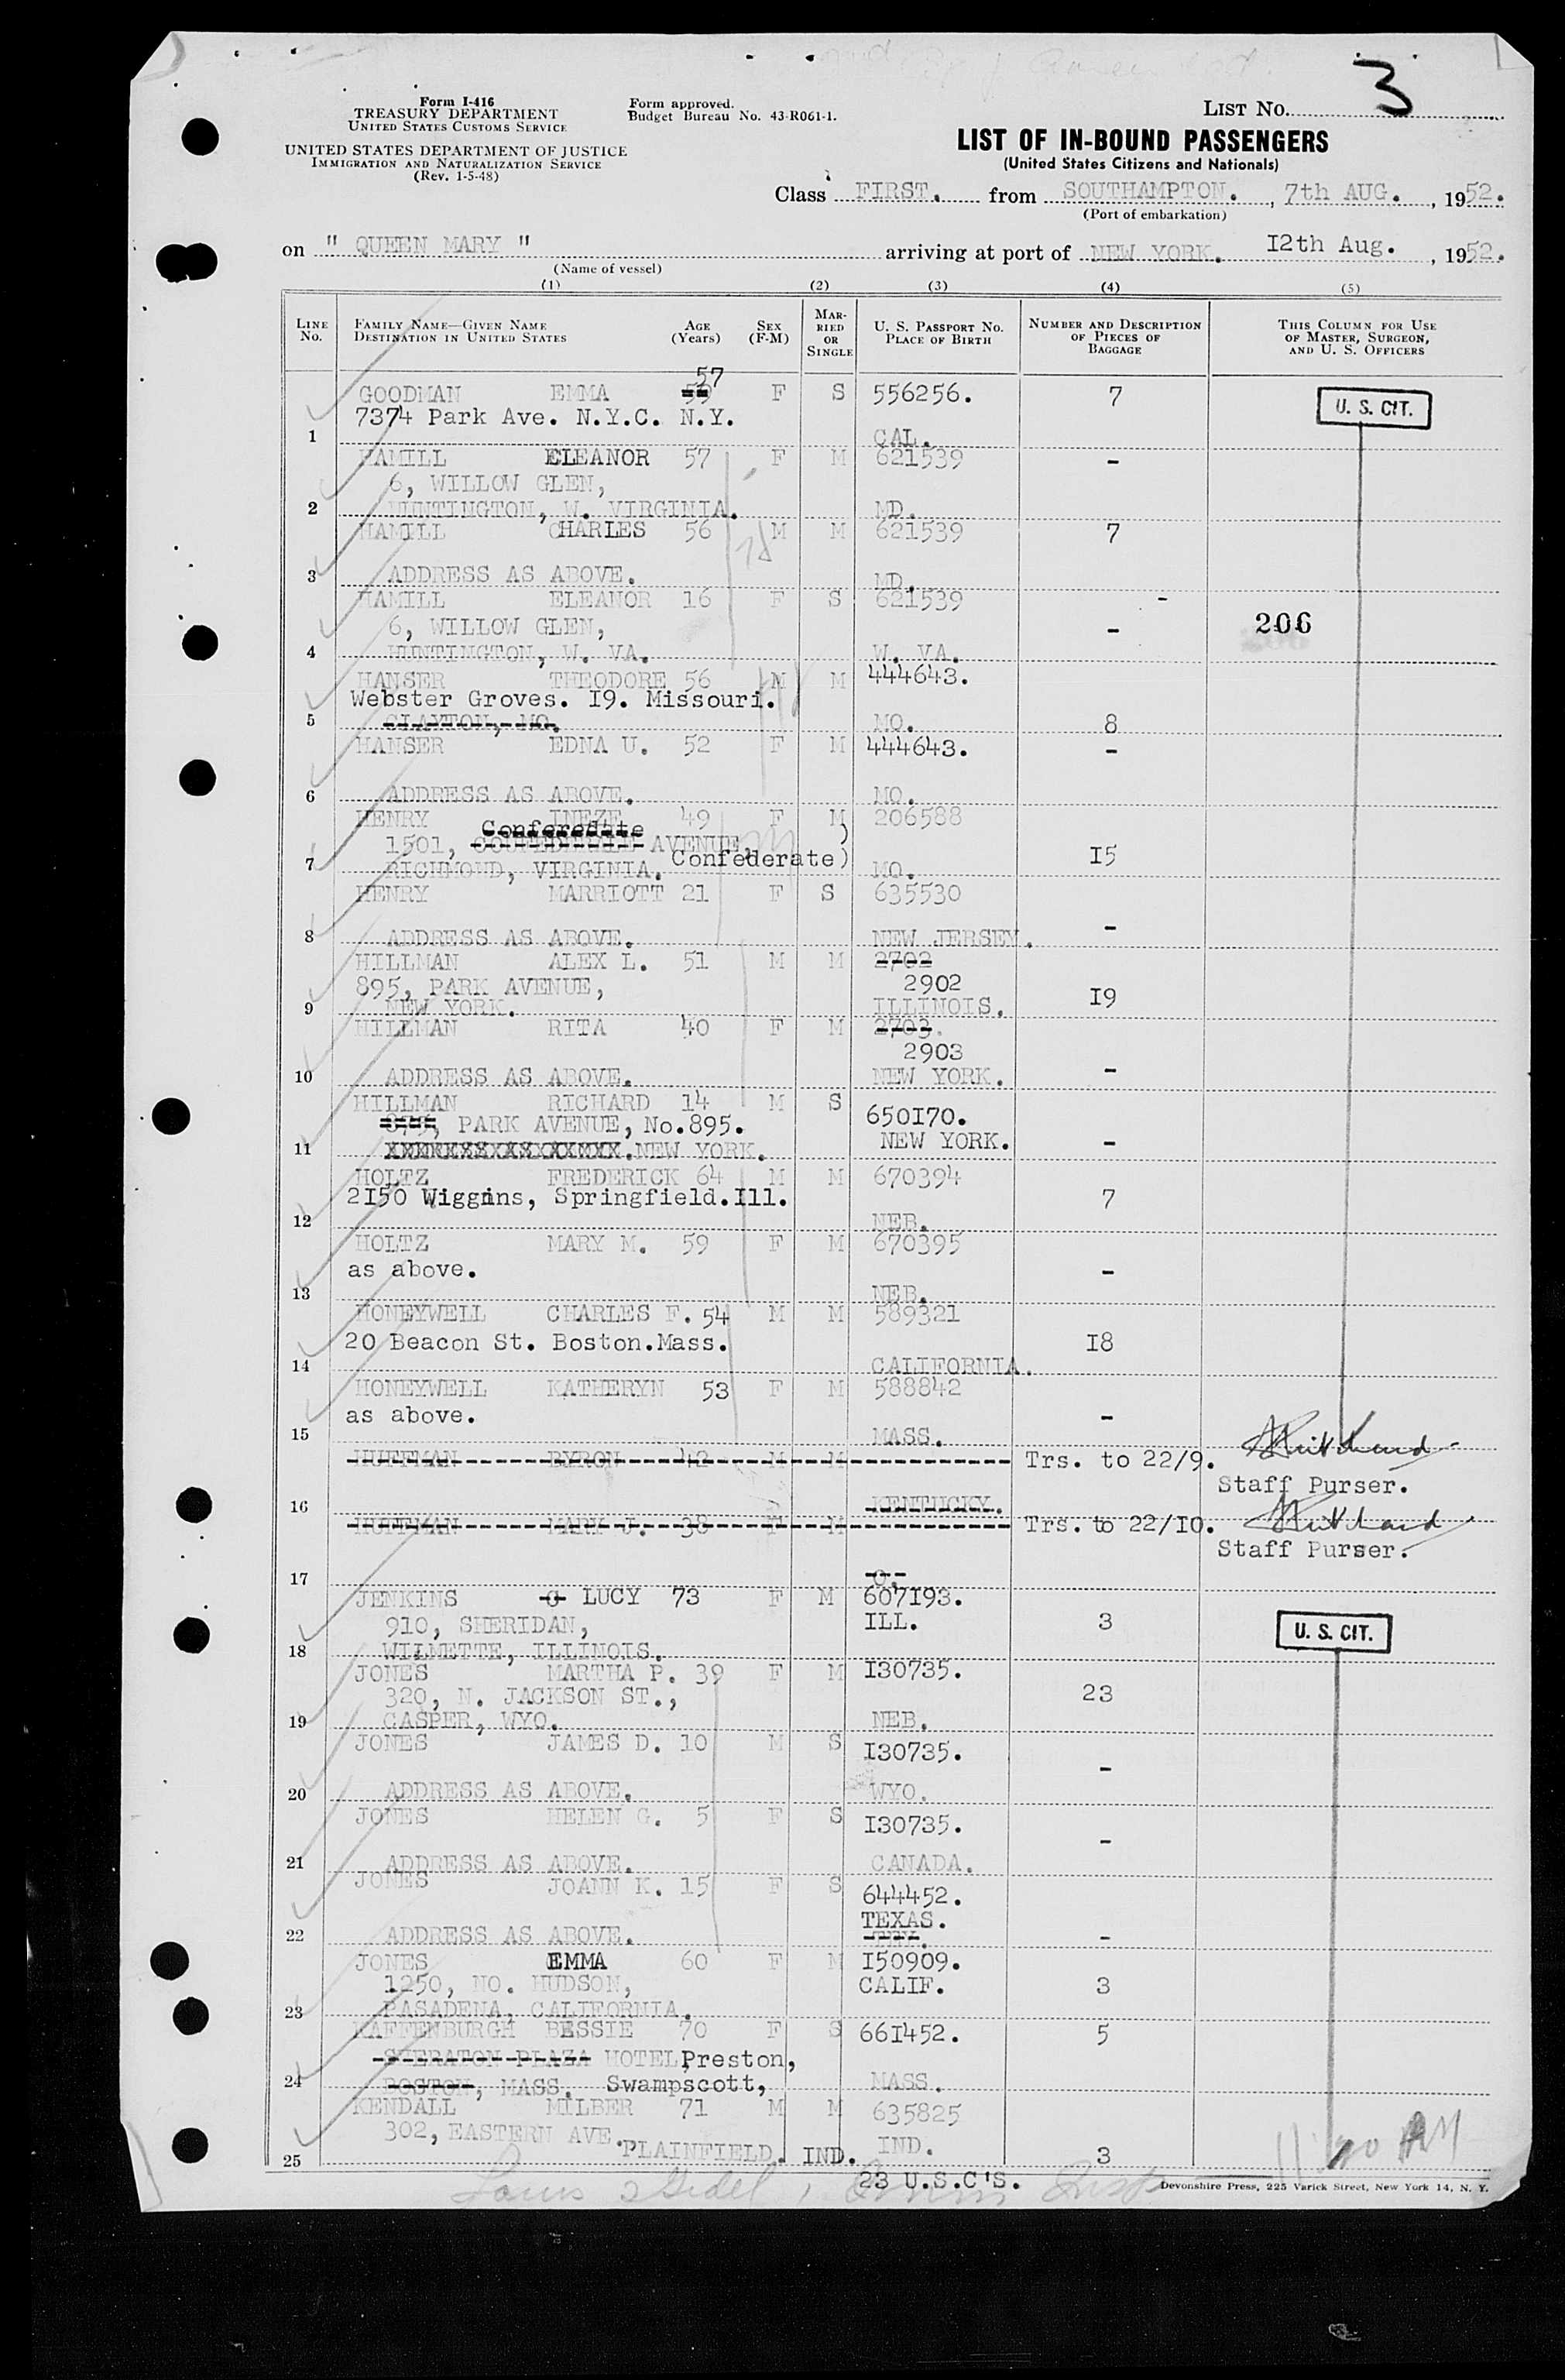 LIST NO. 3
Form I-416
TREASURY DEPARTMENT
UNITED STATES CUSTOMS SERVICE
UNITED STATES DEPARTMENT OF JUSTICE
IMMIGRATION AND NATURALIZATION SERVICE
(Rev. 1-5-48)
Form approved.
Budget Bureau No. 43-R061-1.
LIST OF IN-BOUND PASSENGERS
(United States Citizens and Nationals)
Class FIRST. from SOUTHAMPTON., 7th AUG., 1952.
(Port of embarkation)
on " QUEEN MARY " arriving at port of NEW YORK. 12th Aug., 1952.
(Name of vessel)
(1) (2) (3) (4) (5)
LINE NO. FAMILY NAME—GIVEN NAME DESTINATION IN UNITED STATES AGE (Years) SEX (F-M) MARRIED OR SINGLE U. S. PASSPORT NO. PLACE OF BIRTH NUMBER AND DESCRIPTION OF PIECES OF BAGGAGE THIS COLUMN FOR USE OF MASTER, SURGEON, AND U. S. OFFICERS
57
GOODMAN EMMA F S 556256. 7 U. S. CIT.
7374 Park Ave. N.Y.C. N.Y.
1 CAL.
HAMILL ELEANOR 57 F M 621539 -
6, WILLOW GLEN,
2 HUNTINGTON, W. VIRGINIA. MD.
HAMILL CHARLES 56 M M 621539 7
3 ADDRESS AS ABOVE. MD.
HAMILL ELEANOR 16 F S 621539 -
6, WILLOW GLEN, - 206
4 HUNTINGTON, W. VA. W. VA.
HANSER THEODORE 56 M M 444643.
Webster Groves. I9. Missouri.
5 CLAYTON, MO. MO. 8
HANSER EDNA U. 52 F M 444643. -
6 ADDRESS AS ABOVE. MO.
HENRY INEZE 49 F M 206588
Conferedite )
1501, AVENUE
Confederate) I5
7 RICHMOND, VIRGINIA. MO.
HENRY MARRIOTT 21 F S 635530
8 ADDRESS AS ABOVE. NEW JERSEY. -
HILLMAN ALEX L. 51 M M 2702
895, PARK AVENUE, 2902 I9
9 NEW YORK. ILLINOIS.
HILLMAN RITA 40 F M 2703.
2903
10 ADDRESS AS ABOVE. NEW YORK. -
HILLMAN RICHARD 14 M S 650I70.
895, PARK AVENUE, No.895.
11 NEW YORK. NEW YORK. -
HOLTZ FREDERICK 64 M M 670394
2I50 Wiggins, Springfield.Ill. 7
12 NEB.
HOLTZ MARY M. 59 F M 670395
as above. -
13 NEB.
HONEYWELL CHARLES F. 54 M M 589321
20 Beacon St. Boston.Mass. I8
14 CALIFORNIA.
HONEYWELL KATHERYN 53 F M 588842
as above. -
15 MASS.
HUFFMAN BYRON 42 M M Trs. to 22/9.
Staff Purser.
16 KENTUCKY.
HUFFMAN MARY J. 38 F M Trs. to 22/I0.
Staff Purser.
17 O.
JENKINS G LUCY 73 F M 607I93.
910, SHERIDAN, ILL. 3 U. S. CIT.
18 WILMETTE, ILLINOIS.
JONES MARTHA P. 39 F M I30735.
320, N. JACKSON ST., 23
19 CASPER, WYO. NEB.
JONES JAMES D. 10 M S I30735.
-
20 ADDRESS AS ABOVE. WYO.
JONES HELEN G. 5 F S I30735.
-
21 ADDRESS AS ABOVE. CANADA.
JONES JOANN K. 15 F S 644452.
TEXAS.
22 ADDRESS AS ABOVE. TEX. -
JONES EMMA 60 F M I50909.
1250, NO. HUDSON, CALIF. 3
23 PASADENA, CALIFORNIA.
KAFFENBURGH BESSIE 70 F S 66I452. 5
SHERATON PLAZA HOTEL Preston,
24 BOSTON, MASS. Swampscott, MASS.
KENDALL MILBER 71 M M 635825
302, EASTERN AVE. IND.
25 PLAINFIELD. IND. 3
23 U.S.C'S.
Devonshire Press, 225 Varick Street, New York 14, N. Y.